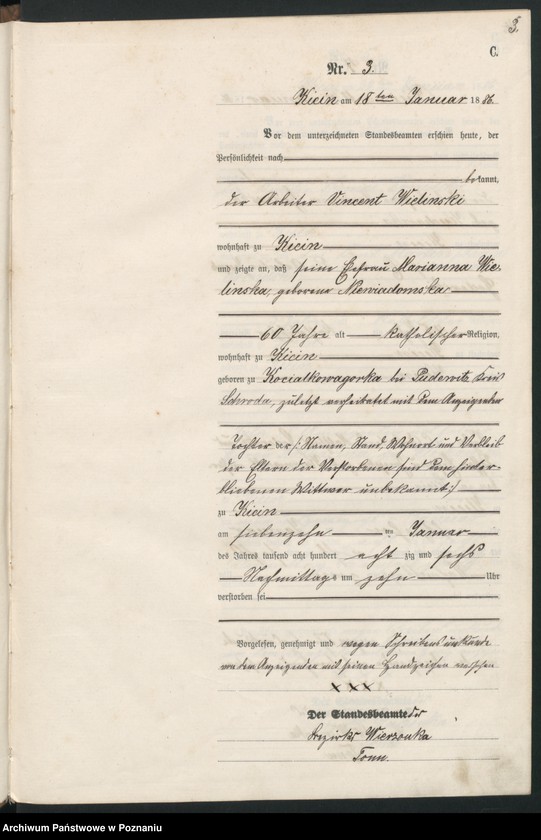 3.
C.
Nr. 3.
Kicin am 18ten Januar 1886.
Vor dem unterzeichneten Standesbeamten erschien heute, der
Persönlichkeit nach
bekannt,
der Arbeiter Vincent Wielinski
wohnhaft zu Kicin
und zeigte an, daß seine Ehefrau Marianna Wie-
linska, geborene Niewiadomska
60 Jahre alt katholischer Religion,
wohnhaft zu Kicin
geboren zu Kocialkowagorka bei Pudewitz Kreis
Schroda, zuletzt verheiratet mit dem Anzeigenden
Tochter der /: Namen, Stand, Wohnort und Verbleib
der Eltern der Verstorbenen sind dem hinter-
bliebenen Wittwer unbekannt :/
zu Kicin
am siebenzehn ten Januar
des Jahres tausend acht hundert acht zig und sechs
Nachmittags um zehn Uhr
verstorben sei
Vorgelesen, genehmigt und wegen Schreibensunkunde
von dem Anzeigenden mit seinen Handzeichen versehen
xxx
Der Standesbeamte des
Bezirks Wierzonka
Tonn.
Archiwum Państwowe w Poznaniu